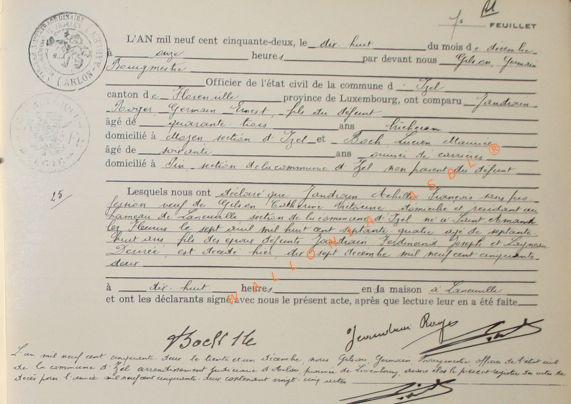 7e FEUILLET
L'AN mil neuf cent cinquante-deux, le dix huit du mois de décembre
à onze heures par devant nous Gilson, Germain
Bourgmestre
Officier de l'état civil de la commune d' Izel
canton de Florenville province de Luxembourg, ont comparu Jandrain
Roger Germain Ernest, fils du défunt
âgé de quarante trois ans
domicilié à Moyen section d'Izel et Bach Lucien Maurice
âgé de soixante ans ouvrier de carrières
domicilié à Pin section de la commune d'Izel non parent du défunt
25
Lesquels nous ont déclaré que Jandrain Achille François sans pro
fession veuf de Gilson Catherine Victorine domicilié et résidant au
hameau de Lacuisine section de la commune d'Izel né à Saint Amand
lez Fleurus le sept avril mil huit cent septante quatre âgé de septante
huit ans fils des époux défunts Jandrain Ferdinand Joseph et
Désirée est décédé hier dix sept décembre mil neuf cent cinquante
deux
à dix huit heures en sa maison à
et ont les déclarants signé avec nous le présent acte, après que lecture leur en a été faite
Jeandrain Roger
L'an mil neuf cent cinquante deux le trente et un décembre, nous Gilson Germain Bourgmestre officier de l'état civil
de la commune d'Izel arrondissement judiciaire d'Arlon province de Luxembourg, avons clos le présent registre aux actes de
décès pour l'année mil neuf cent cinquante deux contenant vingt-cinq actes
ARLON
WALLONIA ASBL ®